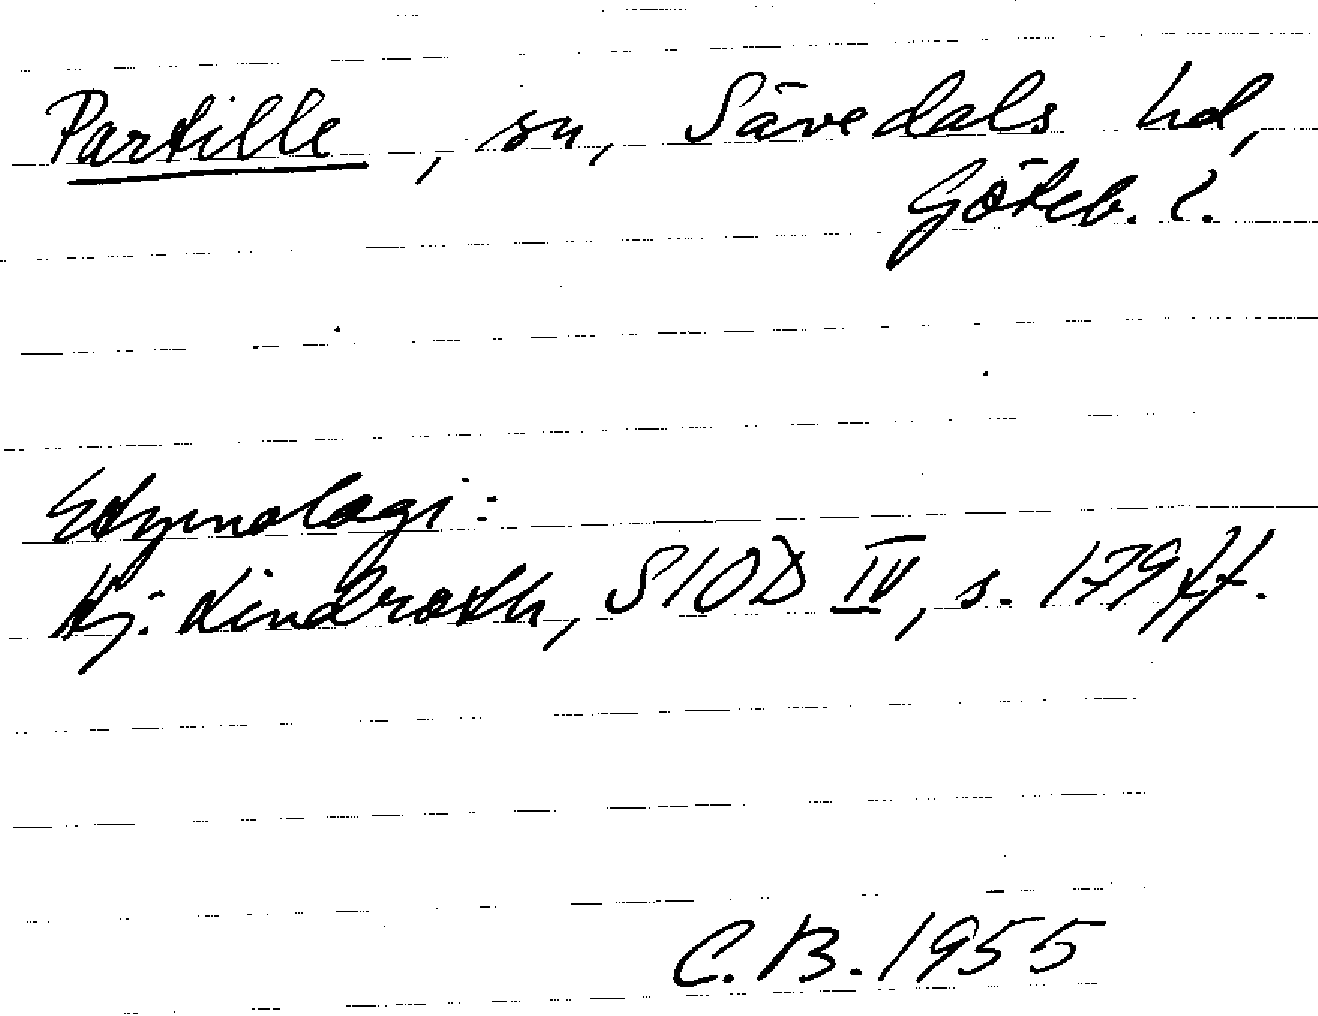 Partille, sn, Sävedals hd,
Göteb. l.
Etymologi:
Hj. Lindroth, SIOD IV, s. 179 ff.
C.B. 1955